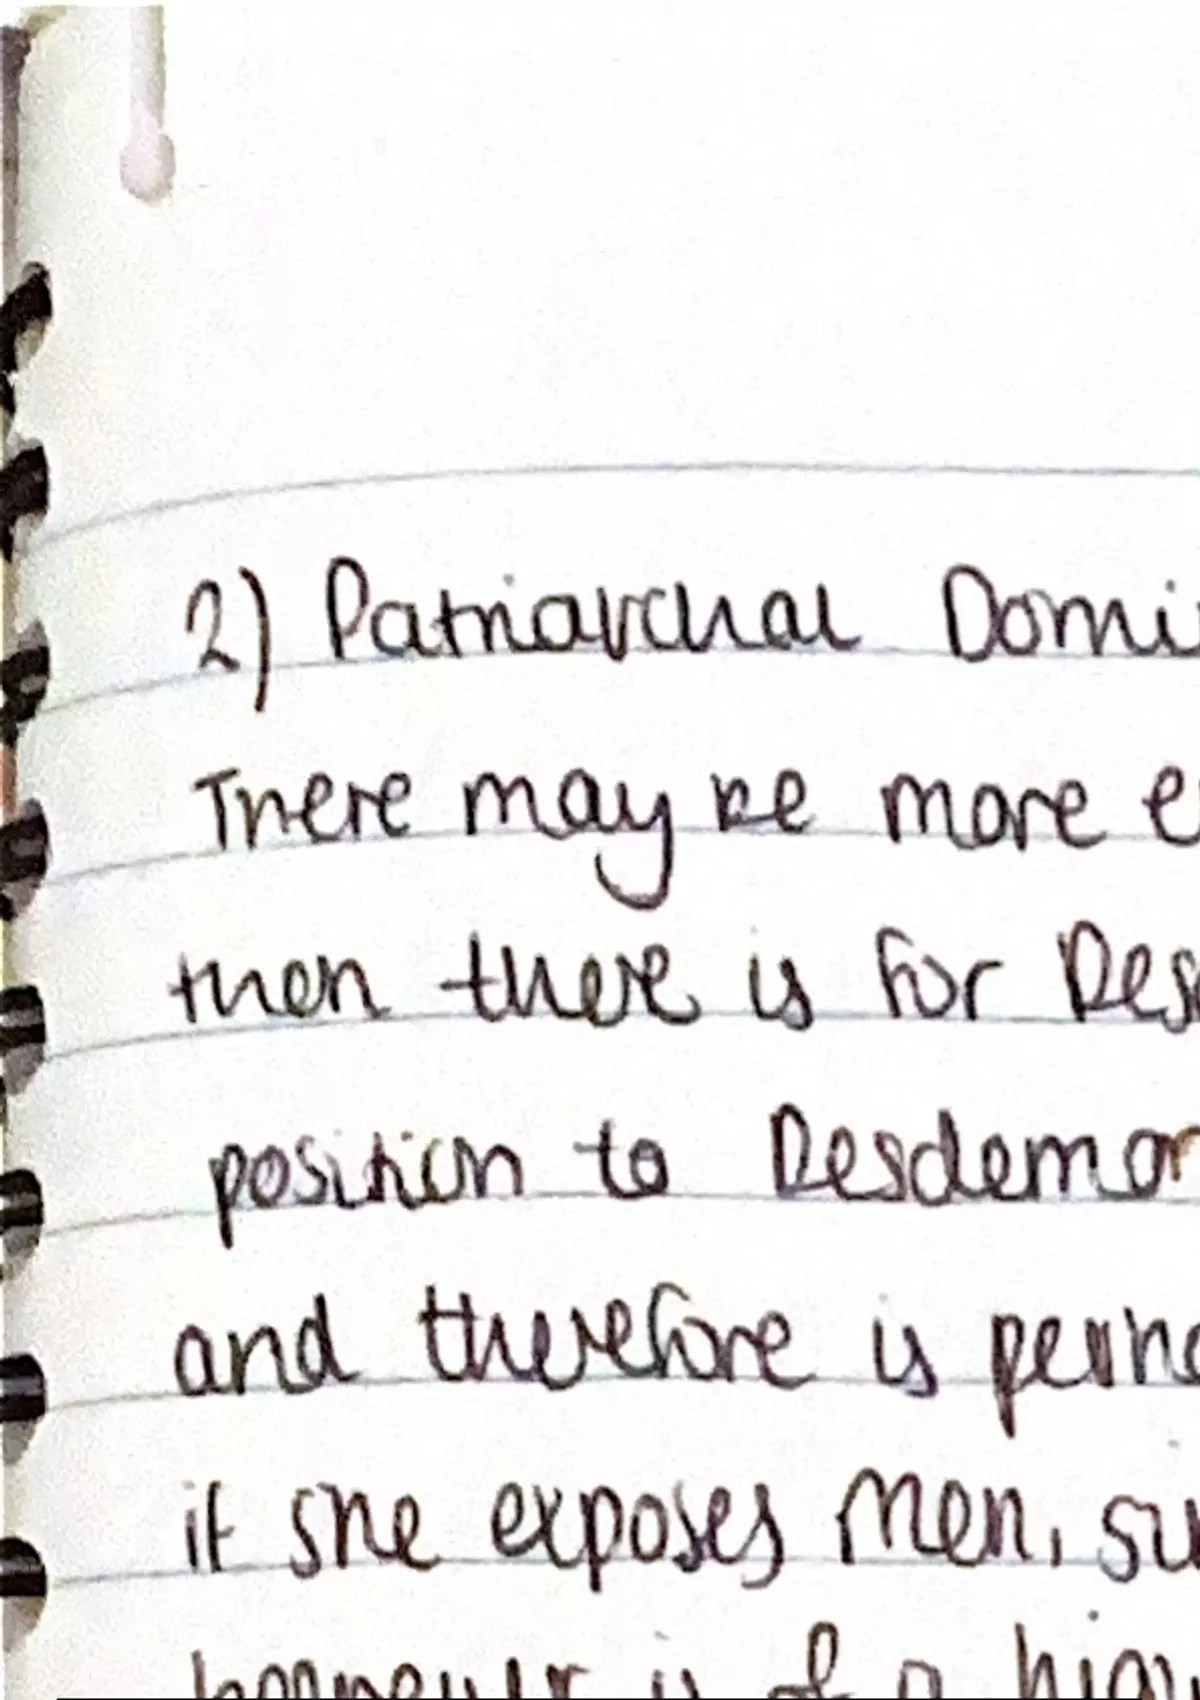 2) Patriarchal Domi
There may be more e
then there is for Des
position to Desdemon
and therefore is perha
if she exposes men, su
is of a high